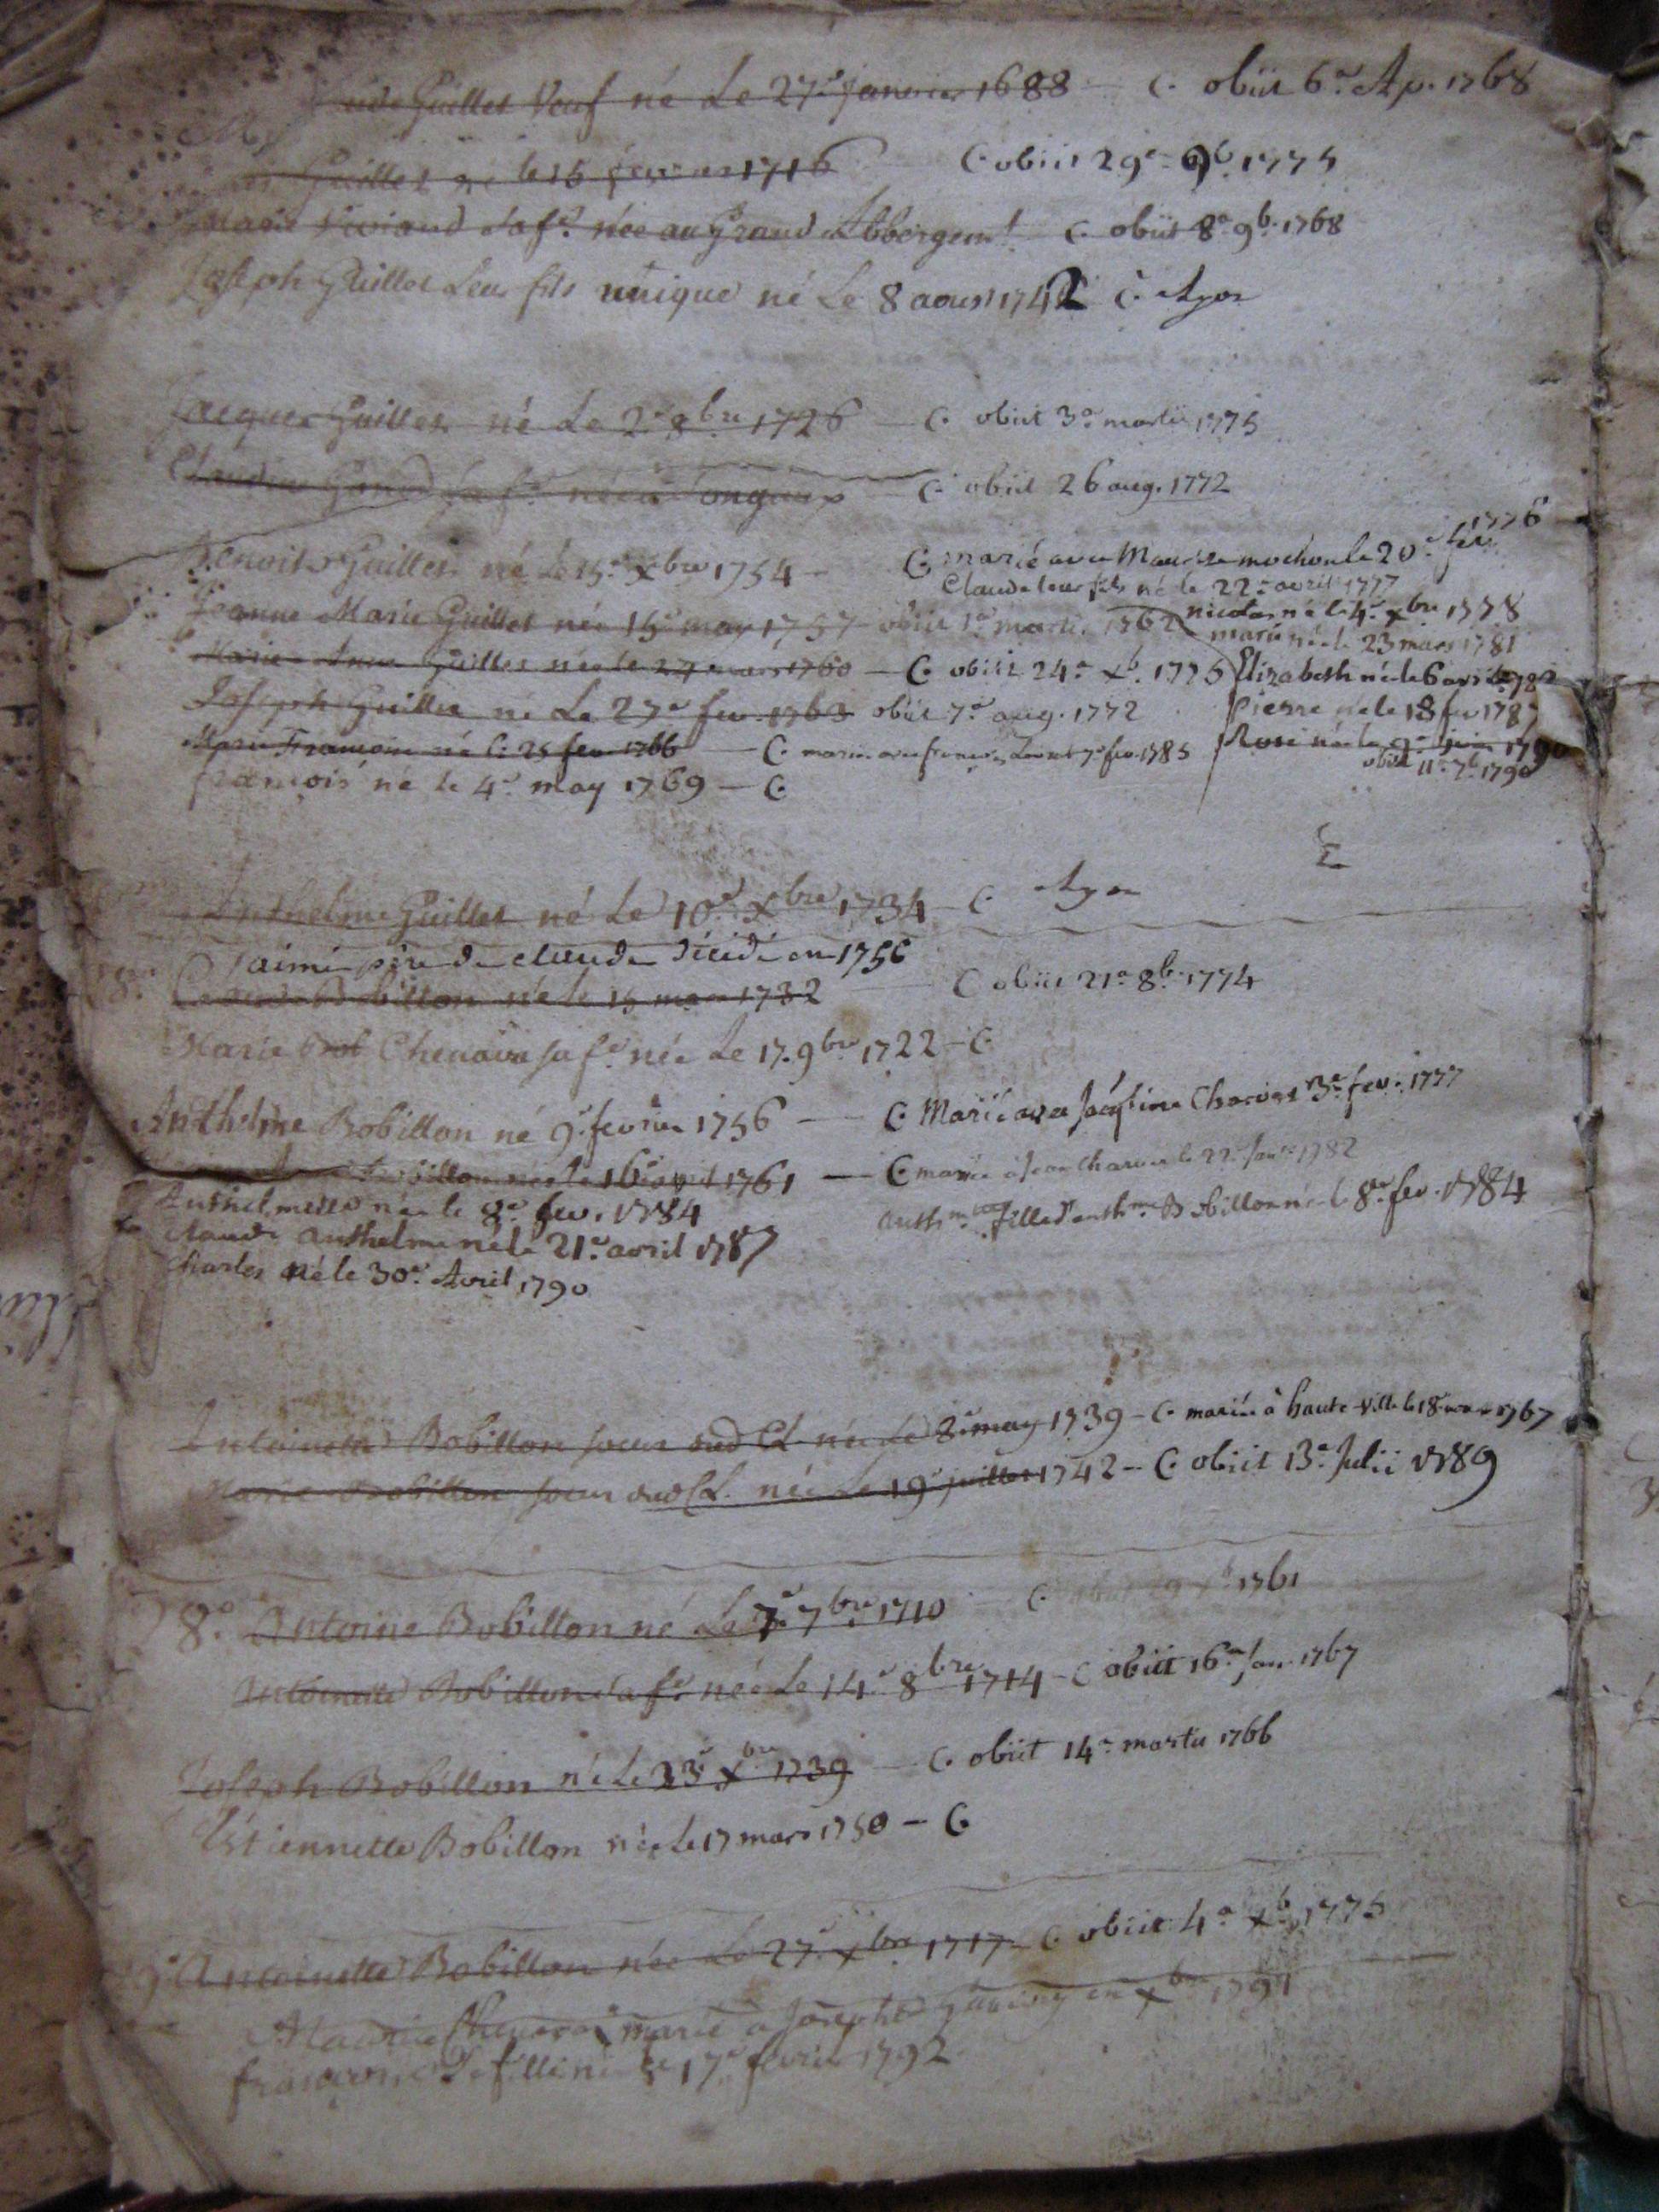 Guillet Veuf né Le 27e janvier 1688 — C. obiit 6a Ap. 1768
Guillet né le 15 1716 C. obiit 29a 9b. 1775
Marie Viviand sa fe. née au Grand Abbergemt. C. obiit 8a 9b. 1768
Joseph Guillet Leur fils unique né Le 8 aoust 1742 C.
Jacques Guillet né Le 2e 9bre 1726 — C. obiit 3a martii 1775
Claudine sa fe. née à Songieux — C. obiit 26 aug. 1772
Benoit Guillet né Le 15e Xbre 1754 — C. marié avec Maurize mochon le 20e fev. 1776
Claude leur fils né le 22e avril 1777
Jeanne Marie Guillet née 15e may 1757 obiit 1a martii 1762 nicolas né le 4e xbre 1778
marie née le 23 mars 1781
Marie Guillet née le 27 mars 1760 — C. obiit 24a xb. 1775 Elizabeth née le 6 avril 1782
Joseph Guillet né Le 27e fev. 1763 obiit 7a aug. 1772 Pierre né le 18 fev 1787
Marie Francoise né le 25 fev. 1766 — C. mariée avec francois 7e fev. 1785 Rose née le 9e juin 1790
obiit 11a 7b. 1790
francois né le 4e may 1769 — C.
Anthelme Guillet né Le 10e Xbre 1734 — C.
aimé père de claude décédé en 1756
8o. Claude Bobillon né le 15 mars 1732 — C. obiit 21a 8b. 1774
Marie Chenavaz sa fe. née Le 17. 9bre 1722 — C.
Anthelme Bobillon né 9e fevrier 1756 — C. Marié avec Charvet 3e fev. 1777
Bobillon née le 16e avril 1761 — C. mariée à Jean Charvet le 22e Janv. 1782
Anthelmette née le 8e fev. 1784 Anthmette fille d'anthme Bobillon née le 8e fev. 1784
Claude anthelme né le 21e avril 1787
Charles né le 30e Avril 1790
Antoinette Bobillon soeur dud Cl. née Le 8e may 1739 — C. mariée à haute-ville le 18 mars 1767
Marie Bobillon soeur dud Cl. née Le 19e juillet 1742 — C. obiit 13a Julii 1789
8o. Antoine Bobillon né Le 7e 7bre 1710 C. obiit 1761
Antoinette Bobillon sa fe. née Le 14e 8bre 1714 — C obiit 16a Jan. 1767
Joseph Bobillon né Le 23e Xbre 1739 — C. obiit 14a martii 1766
Estiennette Bobillon née Le 17 mars 1750 — C.
9o Antoinette Bobillon née Le 27e xbre 1717 — C. obiit 4a xb. 1775
Maurice marié a Josephe en Xbre 1791
francoise sa fille née le 17e fevrier 1792